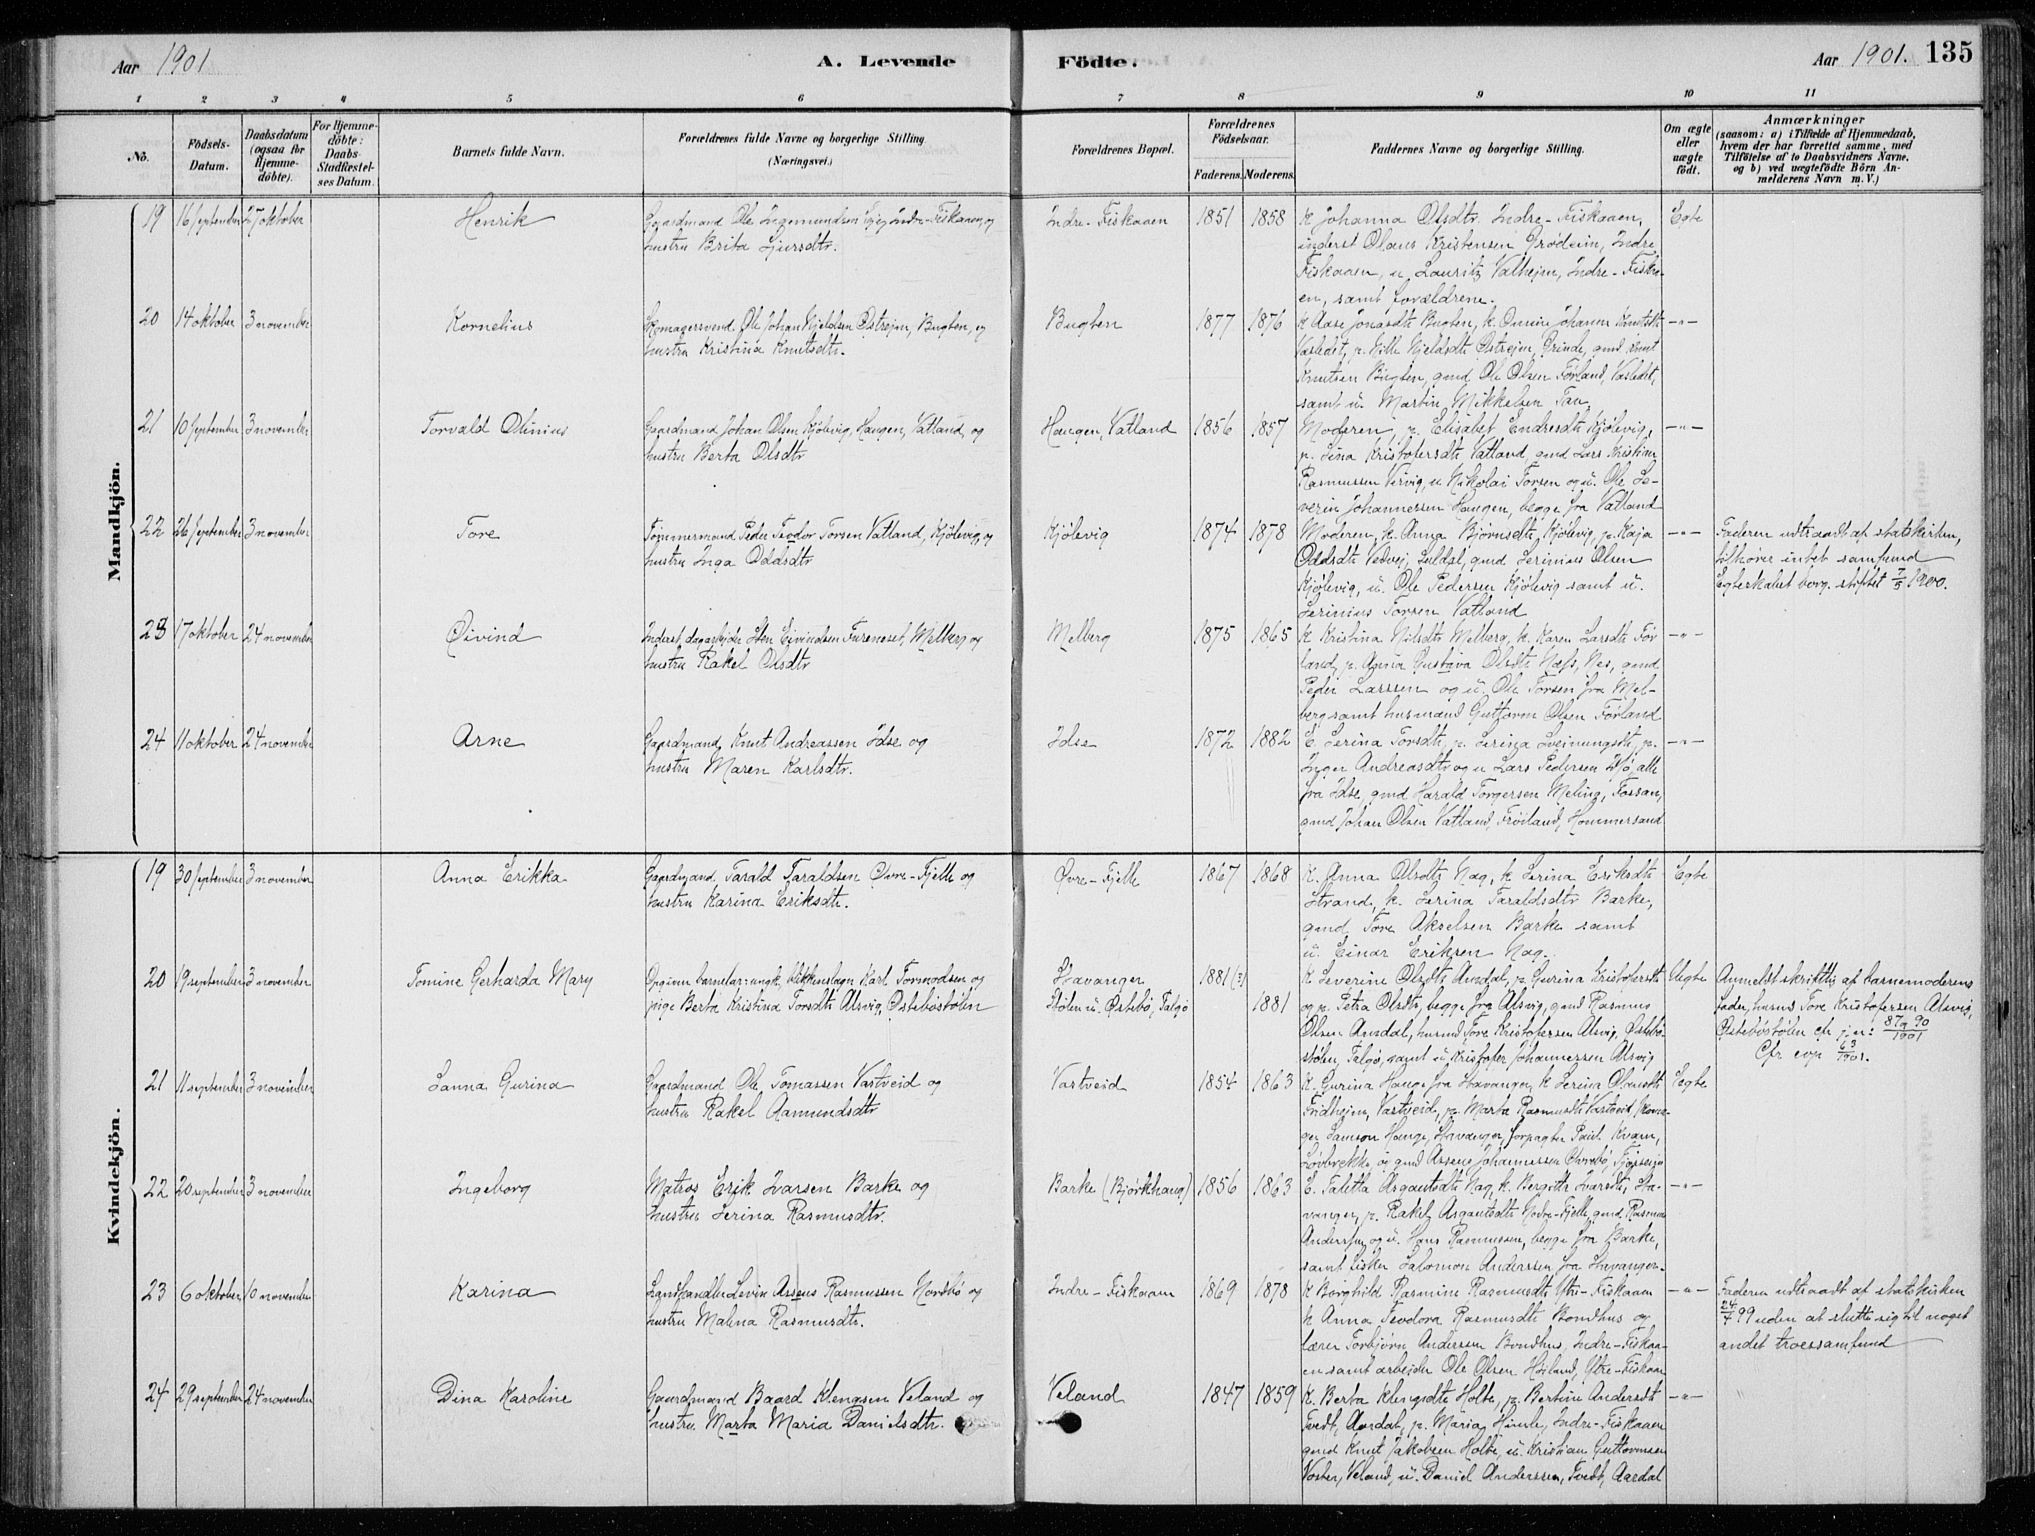 Aar 1901
A. Levende
Födte.
Aar 1901. 135
1 2 3 4 5 6 7 8 9 10 11
No.
Födsels-Datum.
Daabsdatum (ogsaa for Hjemme-döbte).
For Hjemme-döbte: Daabs-Stadfæstel-ses Datum.
Barnets fulde Navn.
Forældrenes fulde Navne og borgerlige Stilling. (Næringsvei.)
Forældrenes Bopæl.
Forældrenes Födselsaar.
Faderens. Moderens.
Faddernes Navne og borgerlige Stilling.
Om ægte eller uægte födt.
Anmærkninger
(saasom: a) i Tilfælde af Hjemmedaab,
hvem der har forrettet samme, med
Tilföielse af to Daabsvidners Navne.
og b) ved uægtefödte Börn An-
melderens Navn m. V.)
Mandkjön.
19 16 September 27 oktober Henrik Gaardmand Ole Ingemundsen Indre-Fiskaaen, og Indre-Fiskaaen 1851 1858 K Johanna Olsdtr. Indre-Fiskaaen, Egte
hustru Brita Sjursdtr. inderst Olaus Kristensen Grødeim, Indre
Fiskaaen, u. Lauritz Valhejm, Indre-Fiska-
en, samt forældrene.
20 14 oktober 3 november Kornelius Skomagersvend Ole Johan Kjeldsen Østrejm, Bugten, og Bugten 1877 1876 K Aase Jonasdtr Bugten, K. Johanne Knutsdtr -"-
hustru Kristina Knutsdtr. Vasledet, p. Nille Kjeldsdtr Østrejm, Grinde, gmd Knut
Knutsen Bugten, gmd Ole Olsen Førland, Vasledet,
samt u. Martin Mikkelsen Tau
21 10 September 3 november Torvald Olinius Gaardmand Johan Olsen Kjølevig, Haugen, Vatland, og Haugen, Vatland 1856 1857 Moderen, p. Elisabet Endresdtr Kjølevig, -"-
hustru Berta Olsdtr p. Lina Kristofersdtr Vatland, gmd Lars Kristian
Rasmussen Vervig, u. Nikolai Torsen og u. Ole Se-
verin Johannessen Haugen, begge fra Vatland
22 26 September 3 november Tore Tømmermand Peder Teodor Torsen Vatland, Kjølevig, og Kjølevig 1874 1878 Moderen, k. Anna Bjørnsdtr Kjølevig, p. Kaja -"- Faderen udtraadt af statskirken,
hustru Inga Oddsdtr Oddsdtr Vedvej, Suldal, gmd Serinius Olsen tilhører intet samfund
Kjølevig, u. Ole Pedersen Kjølevig samt u. Egteskabet borg. stiftet 7/5 1900.
Serinius Torsen Vatland
23 17 oktober 24 november Øivind Inderst, dagarbejder Sten Eivindsen Fureneset, Melberg, og Melberg 1875 1865 K Kristina Nilsdtr Melberg, k. Karen Larsdtr Før -"-
hustru Rakel Olsdtr land, p. Anna Gustava Olsdtr Næss, Nes, gmd
Peder Larssen og u. Ole Torsen fra Mel-
berg samt husmand Guttorm Olsen Førland
24 11 oktober 24 november Arne Gaardmand Knut Andreassen Idse og Idse 1872 1882 E. Serina Torsdtr, p. Serina Sveinungsdtr, p. -"-
hustru Maren Karlsdtr. Inger Andreasdtr og u Lars Pedersen alle
fra Idse, gmd Harald Torgersen Meling, Fossan,
gmd Johan Olsen Vatland, Frøiland, Hommersand
Kvindekjön.
19 30 September 3 november Anna Erikka Gaardmand Tarald Taraldsen Øvre-Fjelle og Øvre-Fjelle 1867 1868 K. Anna Olsdtr Nag, k. Serina Eriksdtr Egte
hustru Karina Eriksdtr. Strand, k. Serina Taraldsdtr Barke,
gmd Tore Akselsen Barke samt
u. Einar Eriksen Nag.
20 19 september 3 november Tomine Gerharda Mary Opgiven barnefar: ungk. blikkenslager Karl Tormodsen og Stavanger 1881 (3) K Severine Olsdtr Aardal, p. Gurina Kristofersdtr Uegte Anmeldt skriftlig af barnemoderens
pige Berta Kristina Torsdtr Alsvig, Østebøstølen Stølen u. Østebø, Talgø 1881 og p. Petra Olsdtr, begge fra Alsvig, gmd Rasmus fader, husmd Tore Kristofersen Alsvig,
Olsen Aardal, husmd Tore Kristofersen Alsvig, Østebø- Østebøstølen cfr jn: 87 og 90/1901
stølen, Talgø, samt u. Kristofer Johannessen Alsvig Cfr evp 63/1901.
21 11 september 3 november Sanna Gurina Gaardmand Ole Tomassen Vastveid og Vastveid 1854 1863 K. Gurina Hauge fra Stavanger, k Serina Olausdtr Egte
hustru Rakel Aamundsdtr Fridhejm, Vastveid, p. Marta Rasmusdtr Vastveid, skoma-
ger Samson Hauge, Stavanger, forpagter Paul Kvam,
Løvbrekke, og gmd Assene Johannessen Øvrebø,
22 20 september 3 november Ingeborg Matros Erik Ivarsen Barke og Barke (Bjørkhaug) 1856 1863 E. Taletta Asgautsdtr Nag, k. Bergitta Ivarsdtr, Sta- -"-
hustru Serina Rasmusdtr. vanger, p. Rakel Asgautsdtr Nedre-Fjelle, gmd Rasmus
Anderssen og u. Hans Rasmussen, begge fra Barke,
samt fisker Salomon Anderssen fra Stavanger.
23 6 oktober 10 november Karina Landhandler Levin Assens Rasmussen Nordbø og Indre-Fiskaaen 1869 1878 K Borghild Rasmine Rasmusdtr Ytre-Fiskaaen -"- Faderen udtraadt af statskirken
hustru Malina Rasmusdtr. k Anna Teodora Rasmusdtr Bondhus og 24/7 99 uden at slutte sig til noget
lærer Torbjørn Andersen Bondhus, Indre-Fiskaa- andet troessamfund
en samt arbejder Ole Olsen Høiland, Ytre-Fiskaaen
24 29 september 24 november Dina Karoline Gaardmand Baard Klengsen Veland og Veland 1847 1859 K. Berta Klengsdtr Holte, p. Bertine Andersdtr -"-
hustru Marta Maria Danielsdtr. Tvedt, Aardal, p. Maria Himle, Indre-Fiskaaen
gmd Knut Jakobsen Holte, u. Kristian Guttormsen
Voster, Veland, u. Daniel Anderssen, Tvedt, Aardal